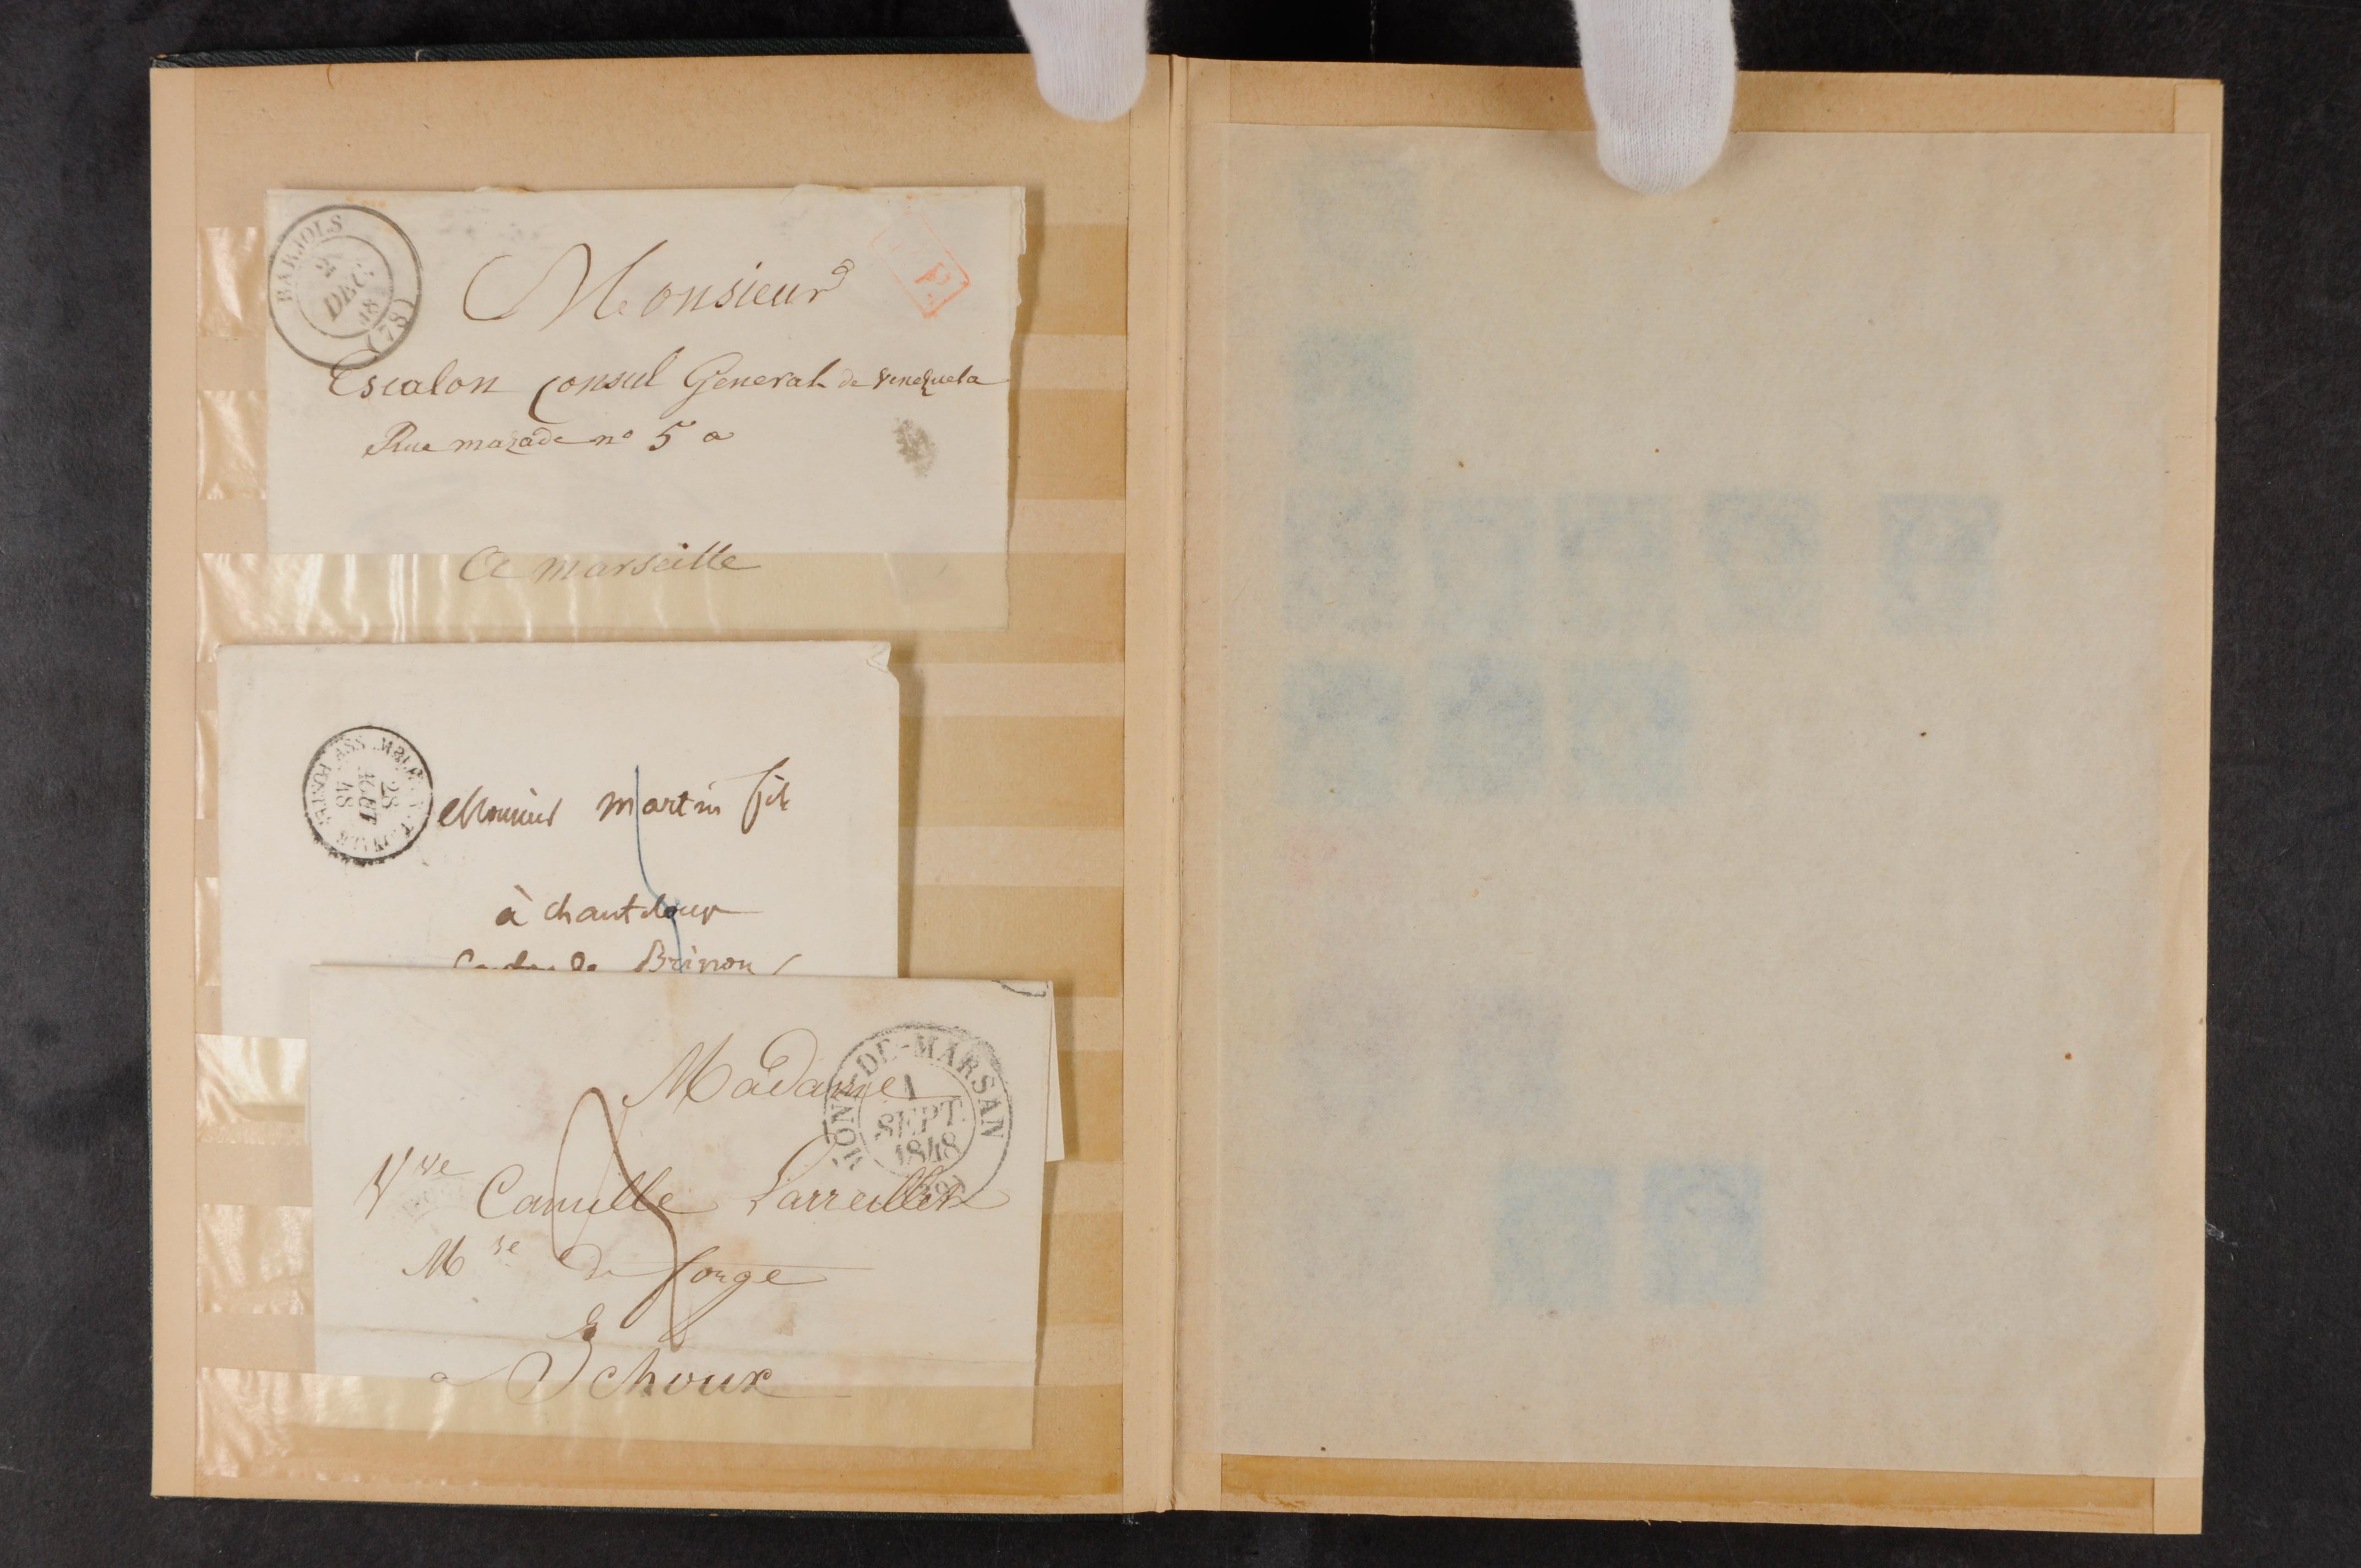 BARJOLS
2
DEC
48
(78)
P.
Monsieur
Escalon Consul General de Venezuela
Rue mazade no 5 a
A marseille
28
48
Monsieur Martin fils
à chanteloup
Brinon
MONT-DE-MARSAN
1
SEPT.
1848
Madame
Vve Camille Larreillet
Mse de forge
a Ychoux